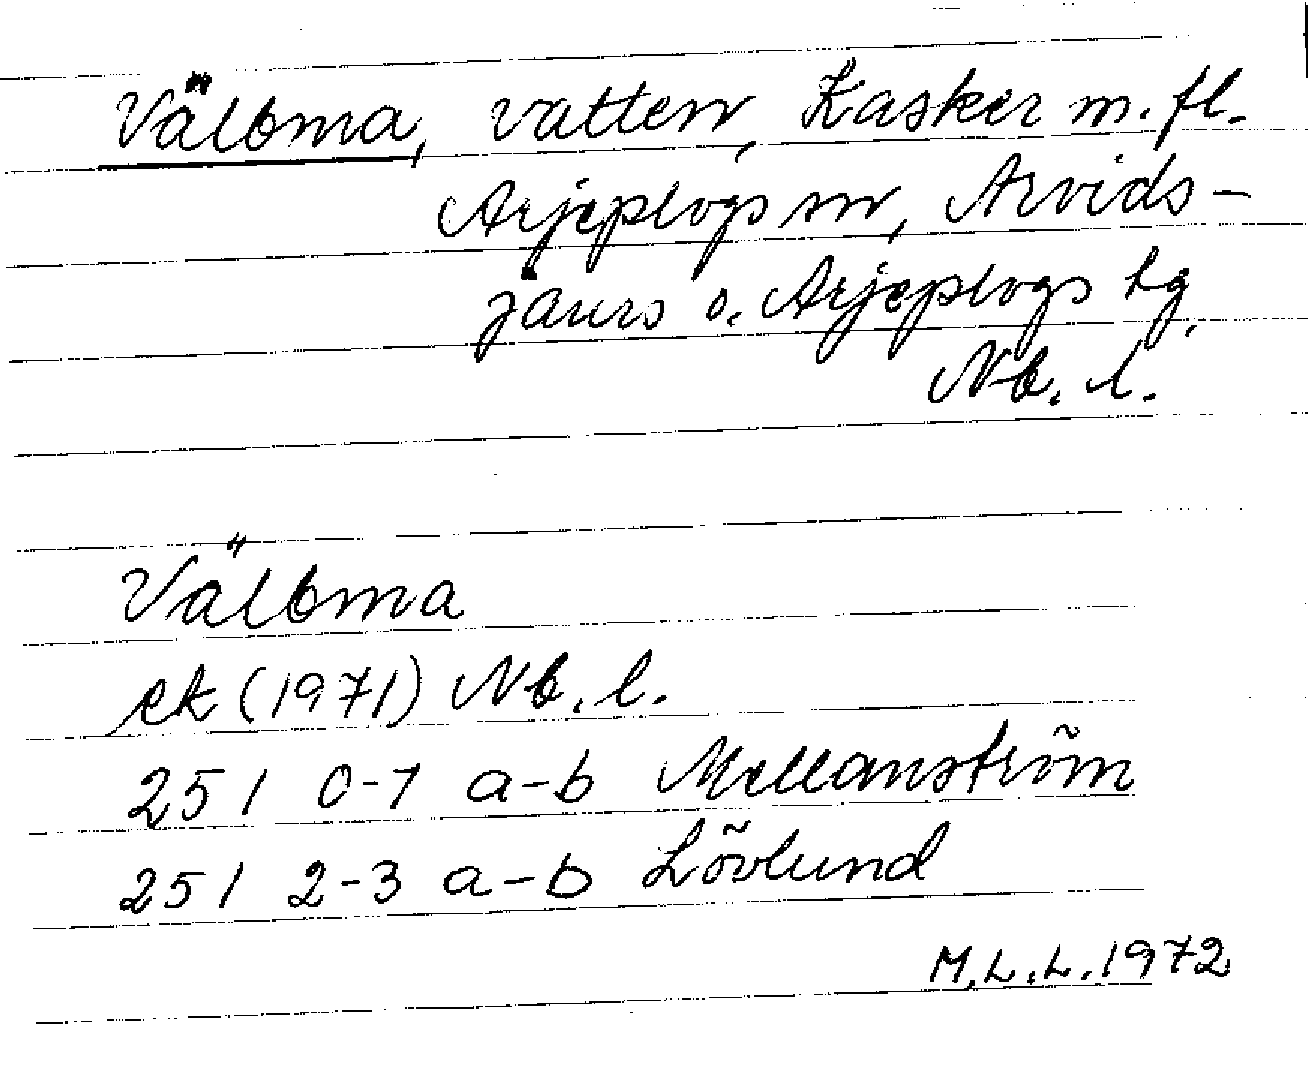 Välbma, vatten, Kasker m. fl.
Arjeplogs sn, Arvids-
jaurs o. Arjeplogs tg,
Nb. l.
Välbma
ek (1971) Nb. l.
251 0-1 a-b Mellanström
251 2-3 a-b Lövlund
M.L.L. 1972